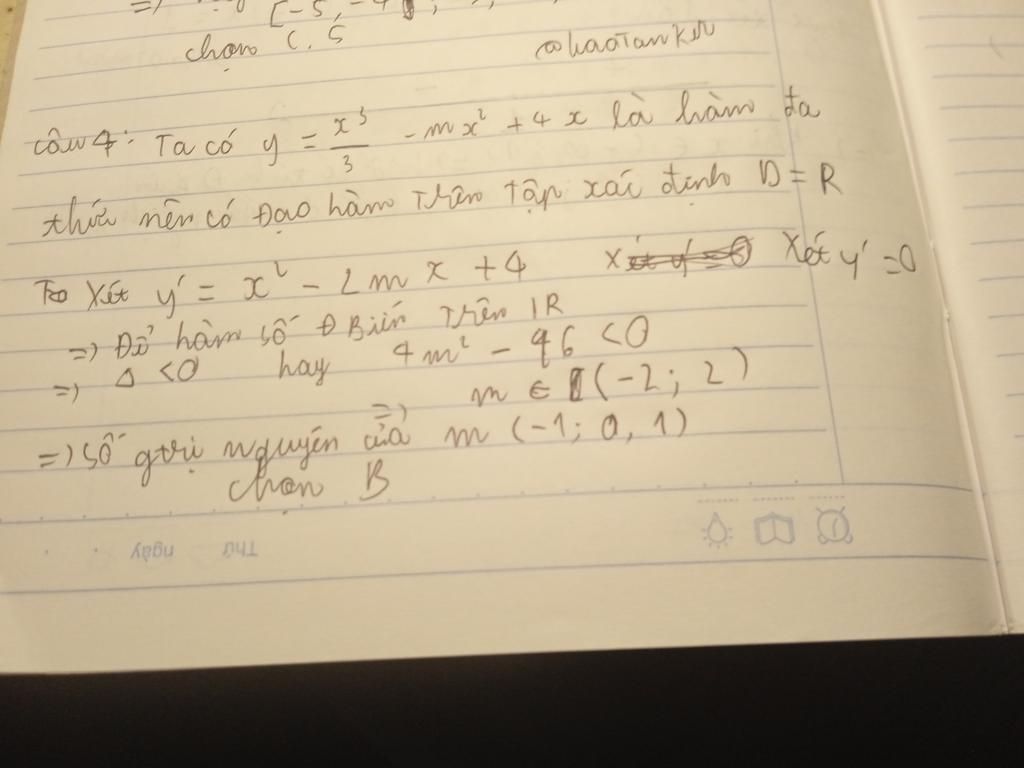 [-5, -4
chọn C. 5
@haoTanKer
Câu 4: Ta có y = x³/3 - mx² + 4x là hàm đa
thức nên có Đạo hàm Trên Tập xác định D = R
Xét y' = x² - 2mx + 4 Xét y' = 0
=> Để hàm số Đ Biến Trên IR
=> Δ < 0 hay 4m² - 96 < 0
=> m ∈ (-2; 2)
=> số gtrị nguyên của m (-1; 0, 1)
chọn B
Thứ ngày